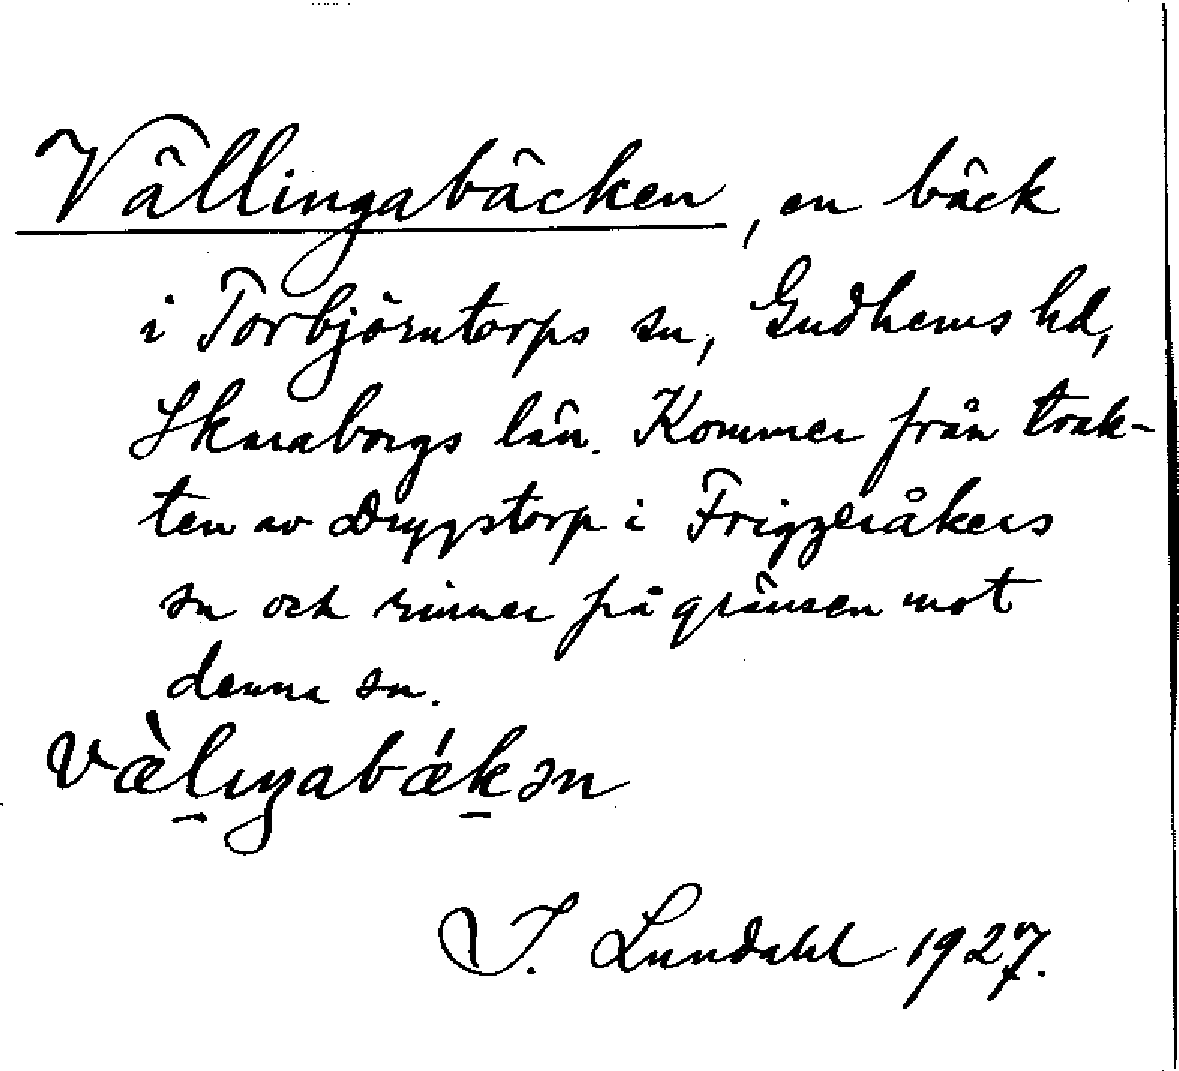 Vällingabäcken, en bäck
i Torbjörntorps sn, Gudhems hd,
Skaraborgs län. Kommer från trak-
ten av Drygstorp i Friggeråkers
sn och rinner på gränsen mot
denna sn.
væ̀l̠ıŋabǽk̠ən
I. Lundahl 1927.